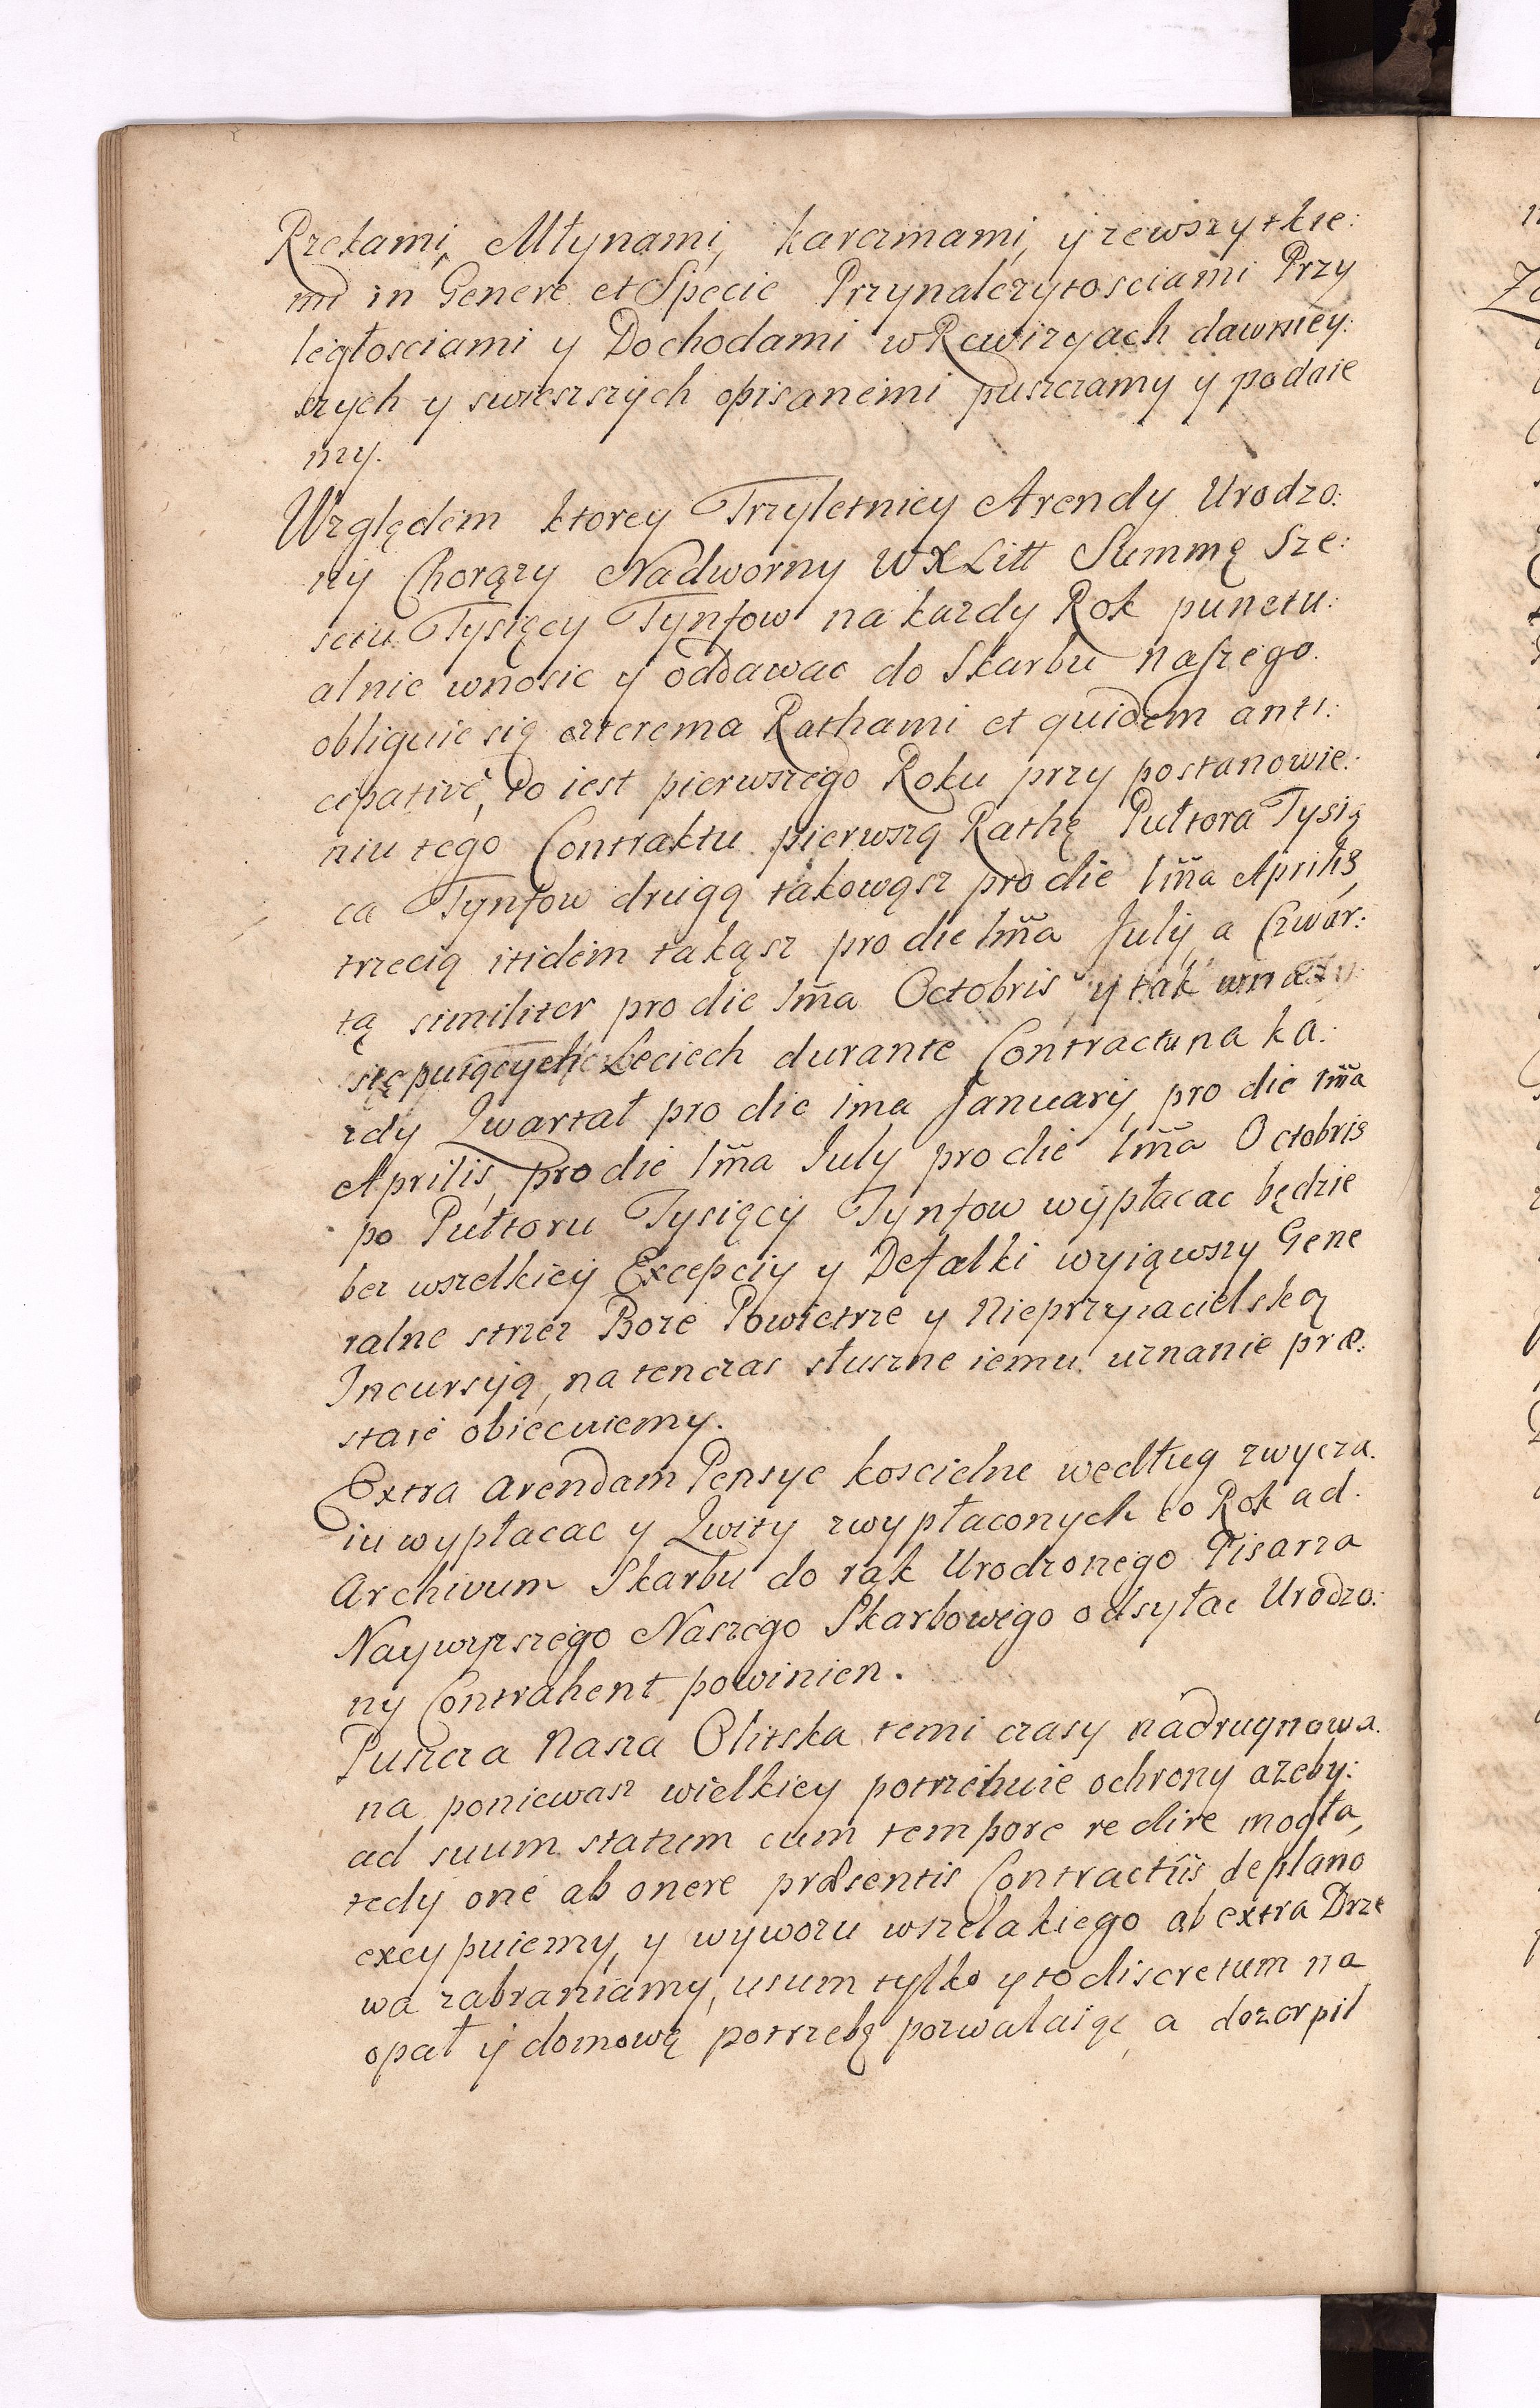 Rzekami, Młynami, karczmami, y zewszytkie:
mi in Genere et Specie Przynalezytosciami Przy
ległosciami y Dochodami w Rewizyach dawniey:
szych y swieszszych opisanemi puszczamy y podaie
my.
Względem ktorey Trzyletniey Arendy Urodzo:
ny Chorązy Nadworny WXLitt Summę Sze:
sciu Tysięcy Tynfow na kazdy Rok punctu:
alnie wnosic y oddawac do Skarbu naszego
obliguie się czterema Rathami et quidem anti:
cipativè, to iest pierwszego Roku przy postanowie:
niu tego Contraktu pierwszą Rathę Pułtora Tysią
ca Tynfow drugą takowąsz pro die 1ma Aprilis,
trzecią itidem takąsz pro die 1ma July, a Czwar:
tą similiter pro die 1ma Octobris y tak w na
stępuiących Leciech durante Contractu na ka:
zdy Qwartał pro die 1ma January, pro die 1ma
Aprilis, pro die 1ma July pro die 1ma Octobris
po Pułtoru Tysięcy Tynfow wypłacac będzie
bez wszelkiey Excepciy y Defalki wyiąwszy Gene
ralne strzez Boze Powietrze y Nieprzyiacielską
Incursyą, na tenczas słuszne iemu uznanie præ:
stare obiecuiemy.
Extra arendam Pensye koscielne według zwycza.
iu wypłacac y Qwity zwypłaconych co Rok ad.
Archivum Skarbu do rąk Urodzonego Pisarza
Naywyzszego Naszego Skarbowego odsyłac Urodzo:
ny Contrahent powinien.
Puszcza Nasza Olitska temi czasy nadrugnowa.
na poniewasz wielkiey potrzebuie ochrony azeby:
ad suum statum cum tempore redire mogła,
tedy one ab onere præsentis Contractûs de plano
excypuiemy, y wywozu wszelakiego ab extra Drze
wa zabraniamy, usum tylko y to discretum na
opał y domową potrzebę pozwalaiąc, a dozor pil